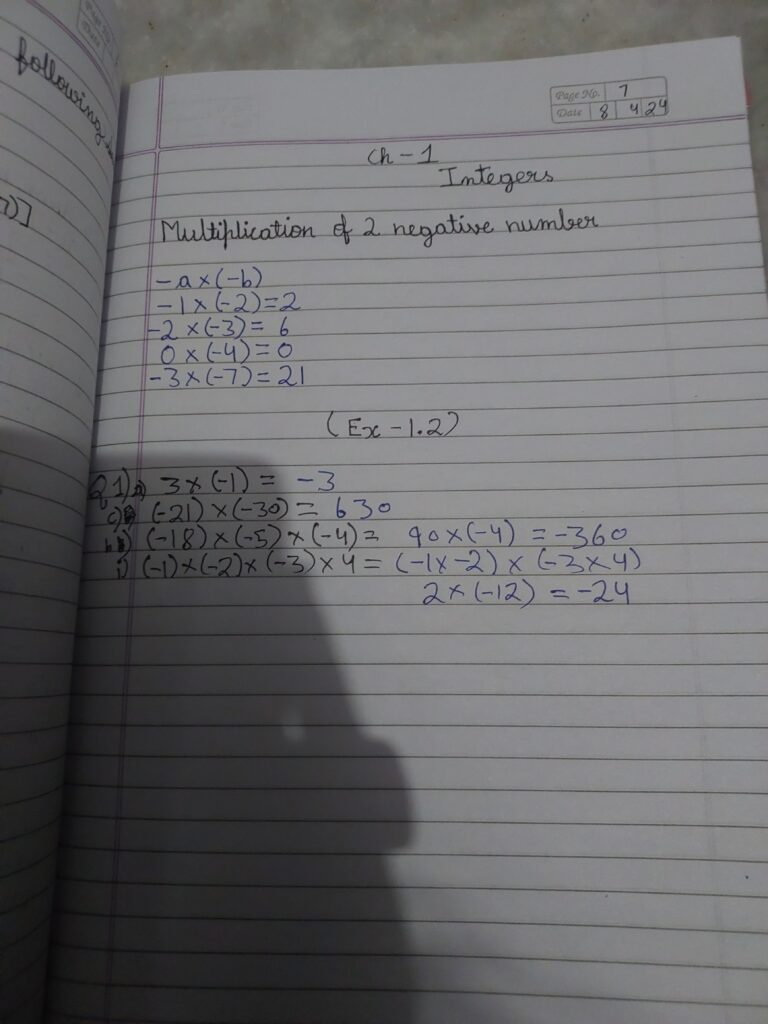 following
7)]
Page No. 7
Date 8 4 24
Ch - 1
Integers
Multiplication of 2 negative number
-a×(-b)
-1×(-2)=2
-2×(-3)= 6
0×(-4)=0
-3×(-7)=21
(Ex - 1.2)
Q1) a) 3×(-1) = -3
c) (-21)×(-30)= 630
(-18)×(-5)×(-4)= 90×(-4) =-360
i) (-1)×(-2)×(-3)×4= (-1×-2)×(-3×4)
2×(-12) =-24